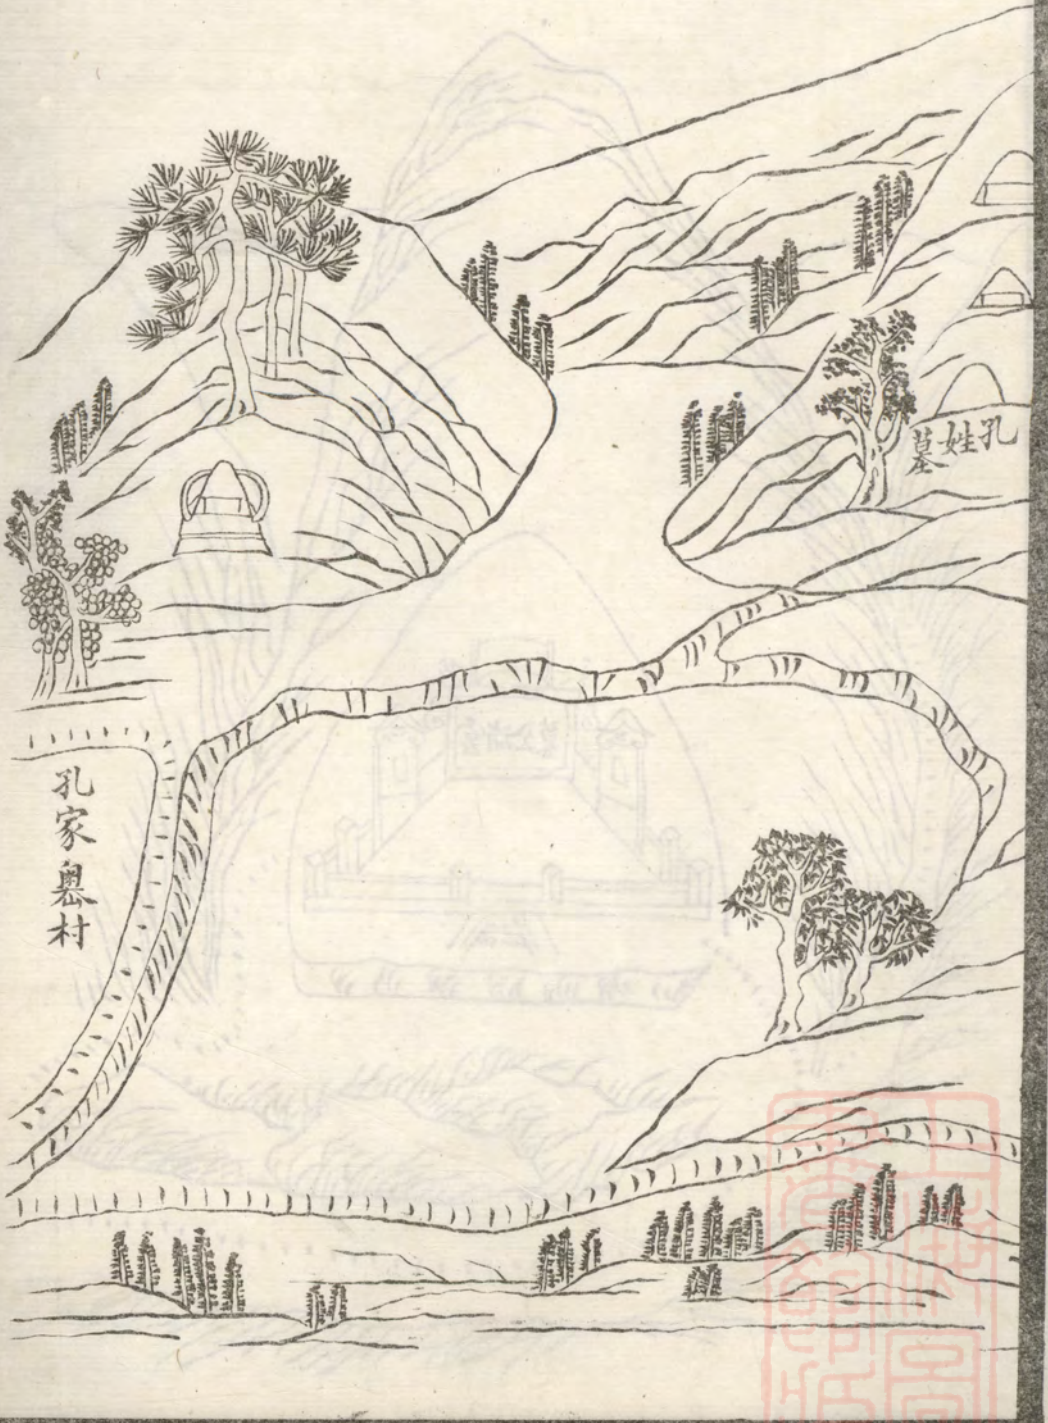 孔姓墓
孔家嶴村